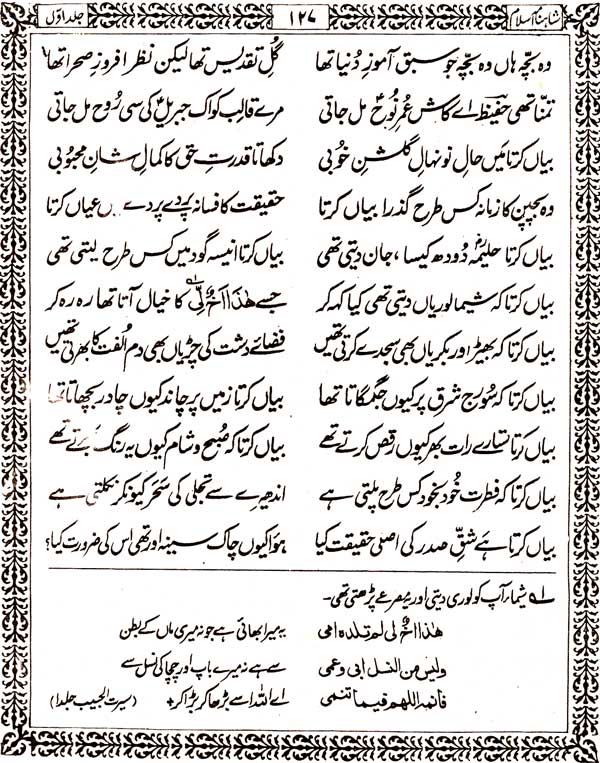 شاہنامہ اسلام ۱۲۷ جلد اوّل
وہ بچّہ ہاں وہ بچّہ جو سبق آموزِ دُنیا تھا گُلِ تقدیس تھا لیکن نظر افروزِ صحرا تھا
تمنّا تھی حفیظؔ اے کاش عمرِ نُوحؑ مل جاتی مرے قالب کو اک جبریلؑ کی سی رُوح مل جاتی
بیاں کرتا میں حالِ نونہالِ گلشنِ خوبی دکھاتا قدرتِ حق کا کمالِ شانِ محبوبی
وہ بچپن کا زمانہ کس طرح گذرا بیاں کرتا حقیقت کا فسانہ پردے پردے میں عیاں کرتا
بیاں کرتا حلیمہؓ دُودھ کیسا، جان دیتی تھی بیاں کرتا انیسہ گود میں کس طرح لیتی تھی
بیاں کرتا کہ شیما لوریاں دیتی تھی کیا کہہ کر جسے ھٰذَا اَخٌ لِّی کا خیال آتا تھا رہ رہ کر
بیاں کرتا کہ بھیڑ اور بکریاں بھی سجدے کرتی تھیں فضائے دشت کی چڑیاں بھی دم اُلفت کا بھرتی تھیں
بیاں کرتا کہ سُورج شرق پر کیوں جگمگاتا تھا بیاں کرتا زمیں پر چاند کیوں چادر بچھاتا تھا
بیاں کرتا ستارے رات بھر کیوں رقص کرتے تھے بیاں کرتا کہ صُبح و شام کیوں یہ رنگ بھرتے تھے
بیاں کرتا کہ فطرت خُود بخود کس طرح پلتی ہے اندھیرے سے تجلی کی سَحَر کیونکر نکلتی ہے
بیاں کرتا ہے شقِّ صدر کی اصلی حقیقت کیا ہوا کیوں چاک سینہ اور تھی اس کی ضرورت کیا؟
۱ شیماء آپ کو لوری دیتی اور یہ مصرعے پڑھتی تھی۔
ھٰذا اخٌ لی لم تلدہ امی یہ میرا بھائی ہے جو نہ میری ماں کے بطن
ولیس من النسل ابی وعمی سے ہے نہ میرے باپ اور چچا کی نسل سے
فانمہ اللھم فیما تنمی اے اللہ اسے بڑھا کر بڑا کر + (سیرت الحبیب جلد ۱)